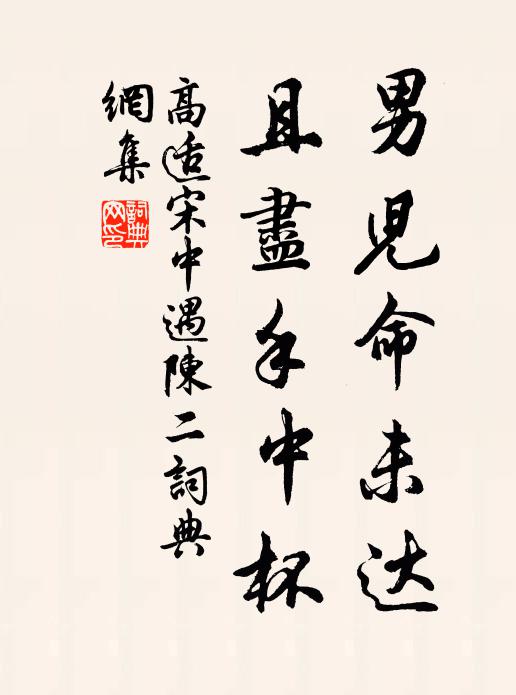 男児命未达
且盡手中杯
高适宋中遇陳二詞典
網集
詞典
网印